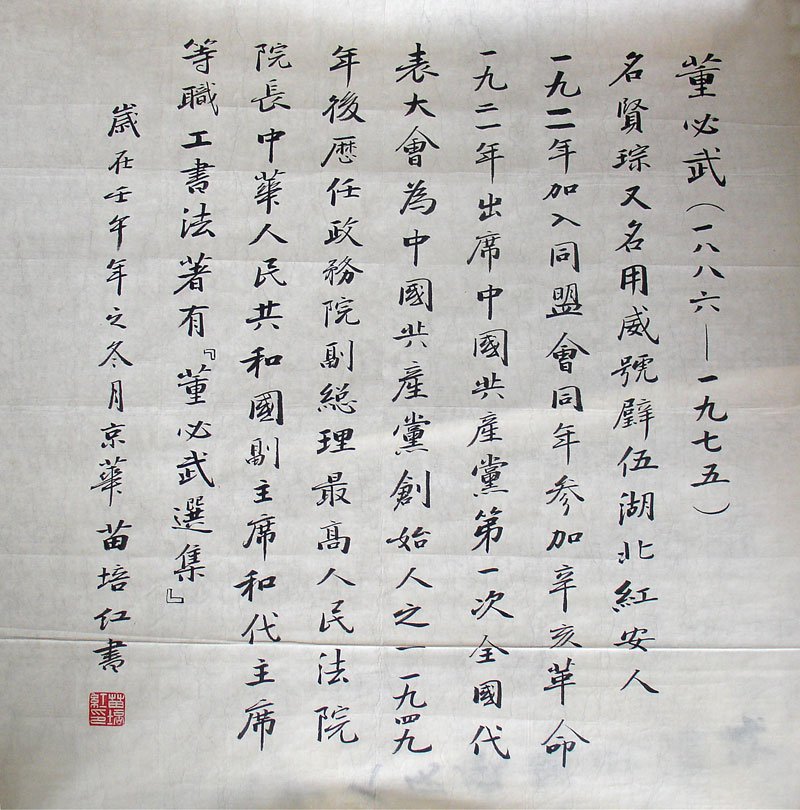 董必武（一八八六—一九七五）
名賢琮又名用威號璧伍湖北紅安人
一九一一年加入同盟會同年参加辛亥革命
一九二一年出席中國共產黨第一次全國代
表大會為中國共產黨創始人之一一九四九
年後歷任政務院副総理最高人民法院
院長中華人民共和國副主席和代主席
等職工書法著有『董必武選集』
歲在壬午年之冬月京華苗培红書
苗培紅印